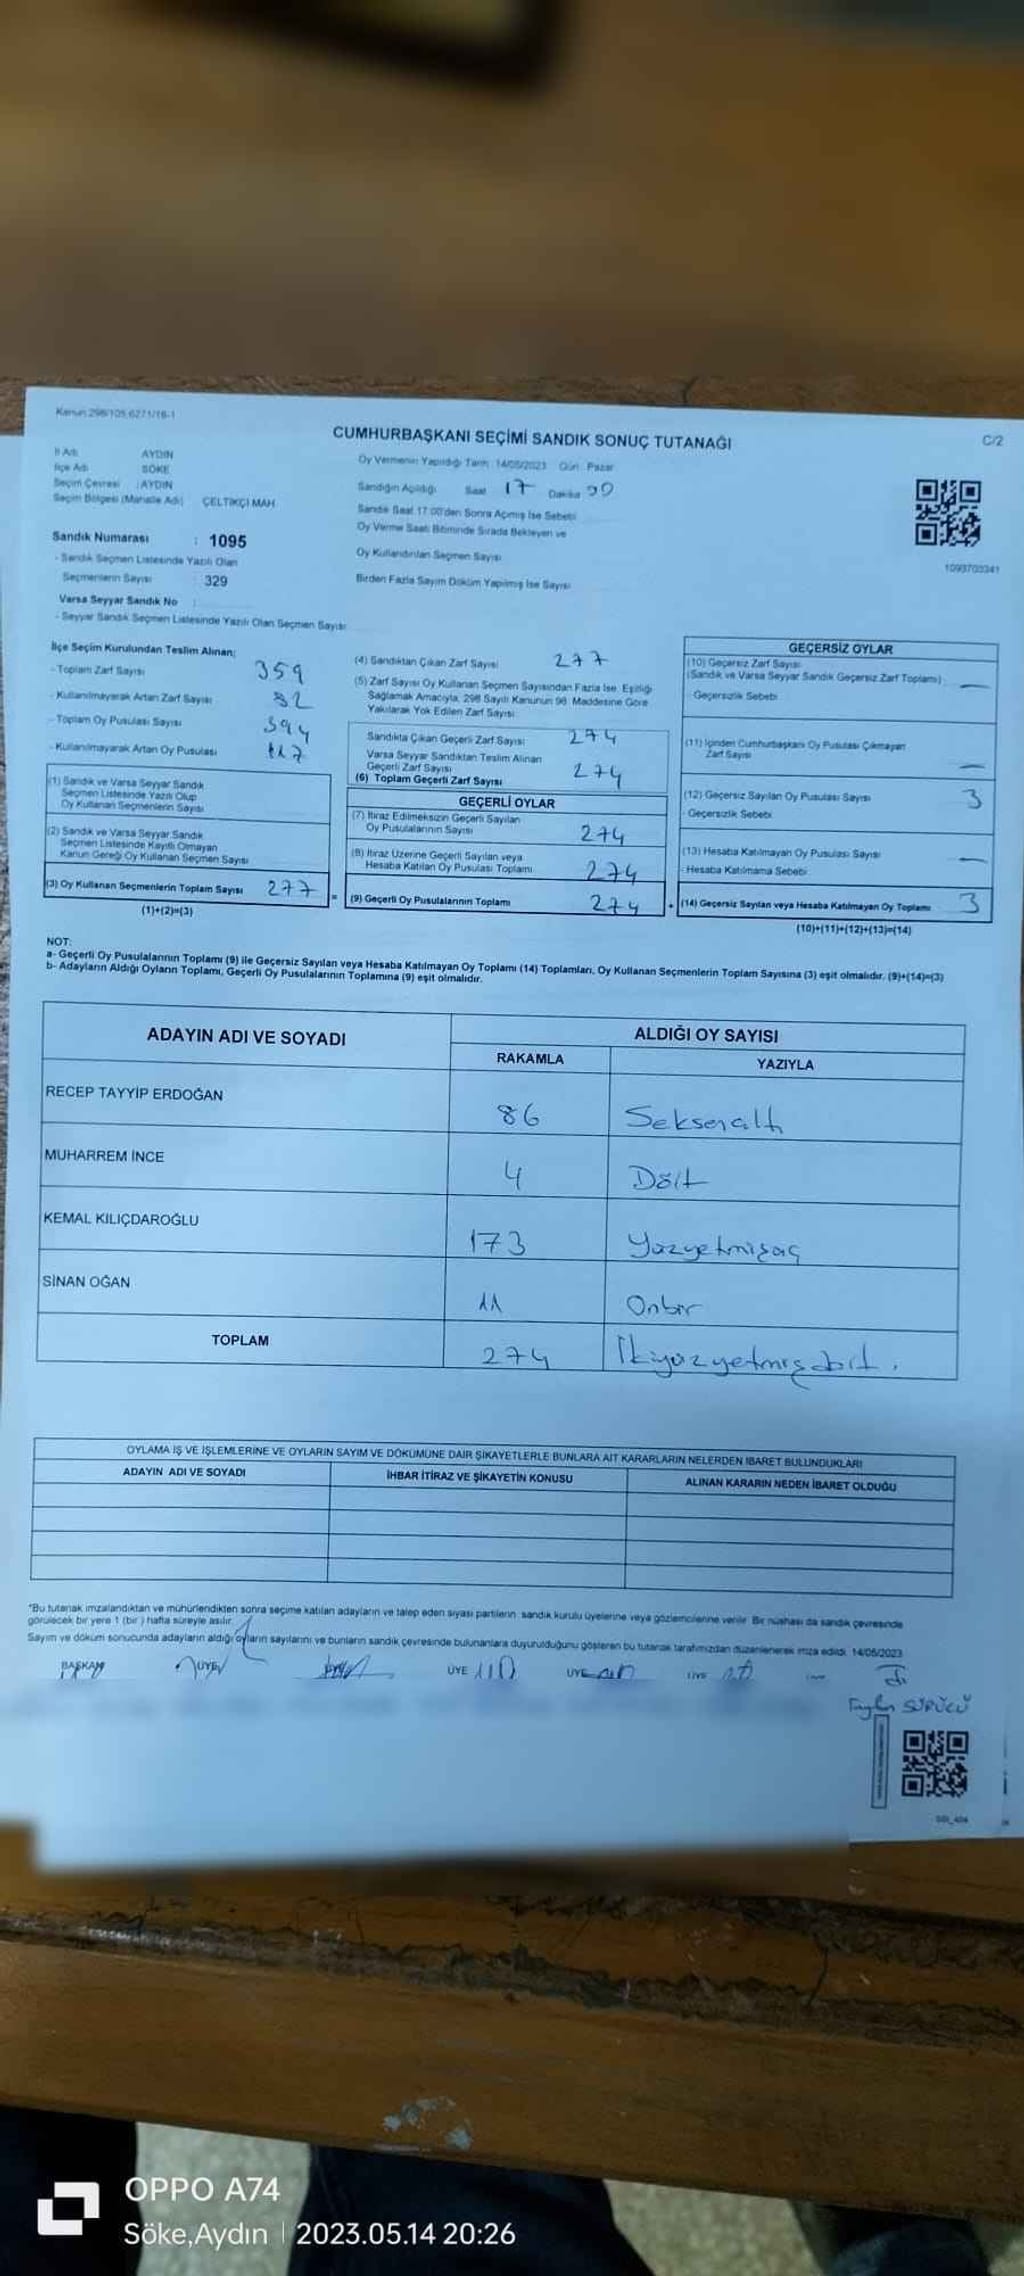 Kanun:298/105,6271/18-1
CUMHURBAŞKANI SEÇİMİ SANDIK SONUÇ TUTANAĞI
C/2
İl Adı AYDIN
İlçe Adı SÖKE
Seçim Çevresi : AYDIN
Seçim Bölgesi (Mahalle Adı) ÇELTİKÇİ MAH.
Sandık Numarası : 1095
- Sandık Seçmen Listesinde Yazılı Olan
Seçmenlerin Sayısı 329
Varsa Seyyar Sandık No :
- Seyyar Sandık Seçmen Listesinde Yazılı Olan Seçmen Sayısı
Oy Vermenin Yapıldığı Tarih :14/05/2023 Gün : Pazar
Sandığın Açıldığı Saat 17 Dakika
Sandık Saat 17:00'den Sonra Açılmış İse Sebebi
Oy Verme Saati Bitiminde Sırada Bekleyen ve
Oy Kullandırılan Seçmen Sayısı
Birden Fazla Sayım Döküm Yapılmış İse Sayısı
1093703341
İlçe Seçim Kurulundan Teslim Alınan;
- Toplam Zarf Sayısı 359
- Kullanılmayarak Artan Zarf Sayısı 82
- Toplam Oy Pusulası Sayısı 394
- Kullanılmayarak Artan Oy Pusulası 117
(1) Sandık ve Varsa Seyyar Sandık
Seçmen Listesinde Yazılı Olup
Oy Kullanan Seçmenlerin Sayısı
(2) Sandık ve Varsa Seyyar Sandık
Seçmen Listesinde Kayıtlı Olmayan
Kanun Gereği Oy Kullanan Seçmen Sayısı
(3) Oy Kullanan Seçmenlerin Toplam Sayısı 277
(1)+(2)=(3)
(4) Sandıktan Çıkan Zarf Sayısı 277
(5) Zarf Sayısı Oy Kullanan Seçmen Sayısından Fazla İse, Eşitliği
Sağlamak Amacıyla, 298 Sayılı Kanunun 98. Maddesine Göre
Yakılarak Yok Edilen Zarf Sayısı
Sandıkta Çıkan Geçerli Zarf Sayısı 274
Varsa Seyyar Sandıktan Teslim Alınan
Geçerli Zarf Sayısı
(6) Toplam Geçerli Zarf Sayısı 274
GEÇERLİ OYLAR
(7) İtiraz Edilmeksizin Geçerli Sayılan
Oy Pusulalarının Sayısı 274
(8) İtiraz Üzerine Geçerli Sayılan veya
Hesaba Katılan Oy Pusulası Toplamı 274
= (9) Geçerli Oy Pusulalarının Toplamı 274
GEÇERSİZ OYLAR
(10) Geçersiz Zarf Sayısı
(Sandık ve Varsa Seyyar Sandık Geçersiz Zarf Toplamı) —
- Geçersizlik Sebebi
(11) İçinden Cumhurbaşkanı Oy Pusulası Çıkmayan
Zarf Sayısı —
(12) Geçersiz Sayılan Oy Pusulası Sayısı 3
- Geçersizlik Sebebi
(13) Hesaba Katılmayan Oy Pusulası Sayısı —
- Hesaba Katılmama Sebebi
+ (14) Geçersiz Sayılan veya Hesaba Katılmayan Oy Toplamı 3
(10)+(11)+(12)+(13)=(14)
NOT:
a- Geçerli Oy Pusulalarının Toplamı (9) ile Geçersiz Sayılan veya Hesaba Katılmayan Oy Toplamı (14) Toplamları, Oy Kullanan Seçmenlerin Toplam Sayısına (3) eşit olmalıdır. (9)+(14)=(3)
b- Adayların Aldığı Oyların Toplamı, Geçerli Oy Pusulalarının Toplamına (9) eşit olmalıdır.
ADAYIN ADI VE SOYADI ALDIĞI OY SAYISI
RAKAMLA YAZIYLA
RECEP TAYYİP ERDOĞAN 86 Seksenaltı
MUHARREM İNCE 4 Dört
KEMAL KILIÇDAROĞLU 173 Yüzyetmişüç
SİNAN OĞAN 11 Onbir
TOPLAM 274 İkiyüzyetmişdört.
OYLAMA İŞ VE İŞLEMLERİNE VE OYLARIN SAYIM VE DÖKÜMÜNE DAİR ŞİKAYETLERLE BUNLARA AİT KARARLARIN NELERDEN İBARET BULUNDUKLARI
ADAYIN ADI VE SOYADI İHBAR İTİRAZ VE ŞİKAYETİN KONUSU ALINAN KARARIN NEDEN İBARET OLDUĞU
*Bu tutanak imzalandıktan ve mühürlendikten sonra seçime katılan adayların ve talep eden siyasi partilerin sandık kurulu üyelerine veya gözlemcilerine verilir. Bir nüshası da sandık çevresinde
görülecek bir yere 1 (bir ) hafta süreyle asılır.
Sayım ve döküm sonucunda adayların aldığı oyların sayılarını ve bunların sandık çevresinde bulunanlara duyurulduğunu gösteren bu tutanak tarafımızdan düzenlenerek imza edildi. 14/05/2023
BAŞKAN ÜYE ÜYE ÜYE ÜYE
SÜRÜCÜ
OPPO A74
Söke,Aydın | 2023.05.14 20:26